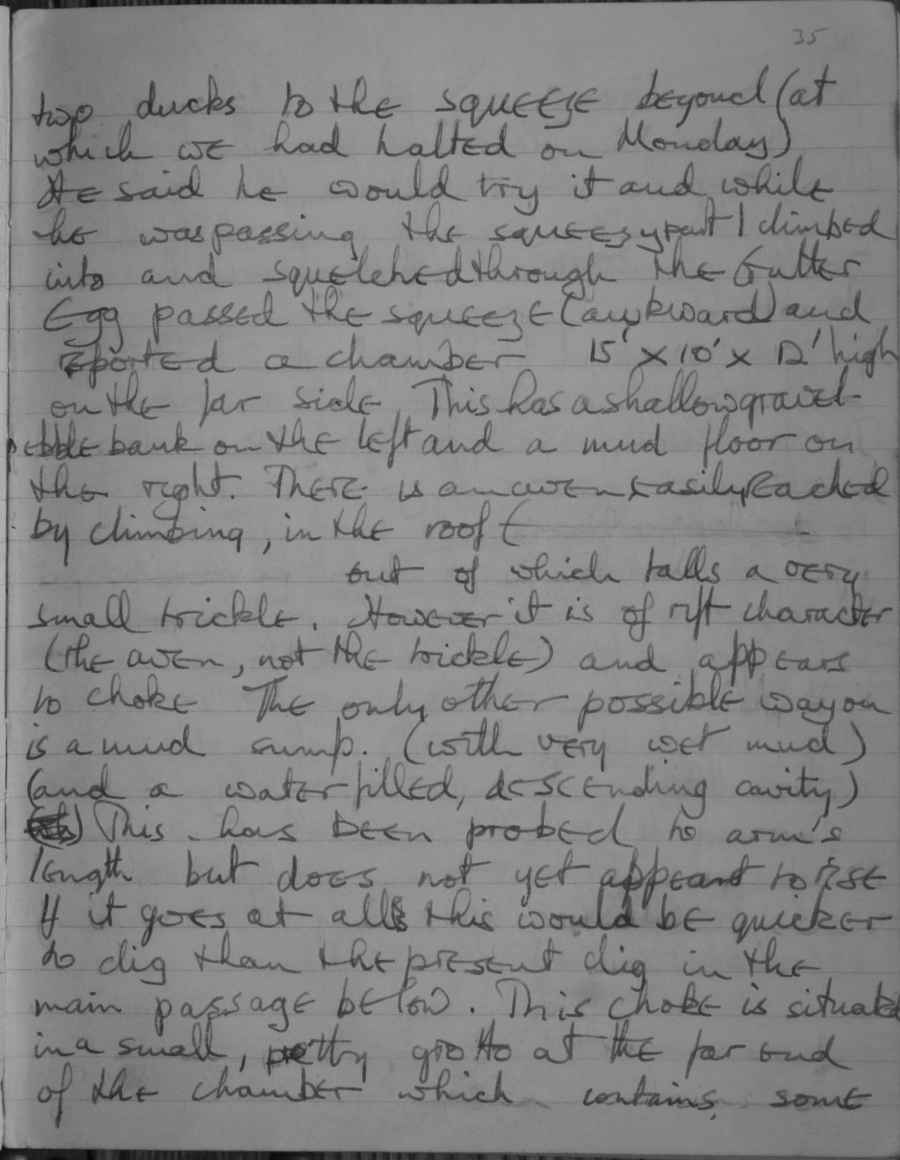 35
two ducks to the squeeze beyond (at
which we had halted on Monday)
He said he would try it and while
he was passing the squeezy part I climbed
into and squelched through the Gutter
Egg passed the squeeze (awkward) and
reported a chamber 15' x 10' x 12' high
on the far side. This has a shallow gravel-
pebble bank on the left and a mud floor on
the right. There is an aven easily reached
by climbing, in the roof (
out of which falls a very
small trickle. However it is of rift character
(the aven, not the trickle) and appears
to choke The only other possible way on
is a mud sump. (with very wet mud)
(and a water filled, descending cavity)
This has been probed to arm's
length but does not yet appear to rise
If it goes at all this would be quicker
to dig than the present dig in the
main passage below. This choke is situated
in a small, pretty grotto at the far end
of the chamber which contains some